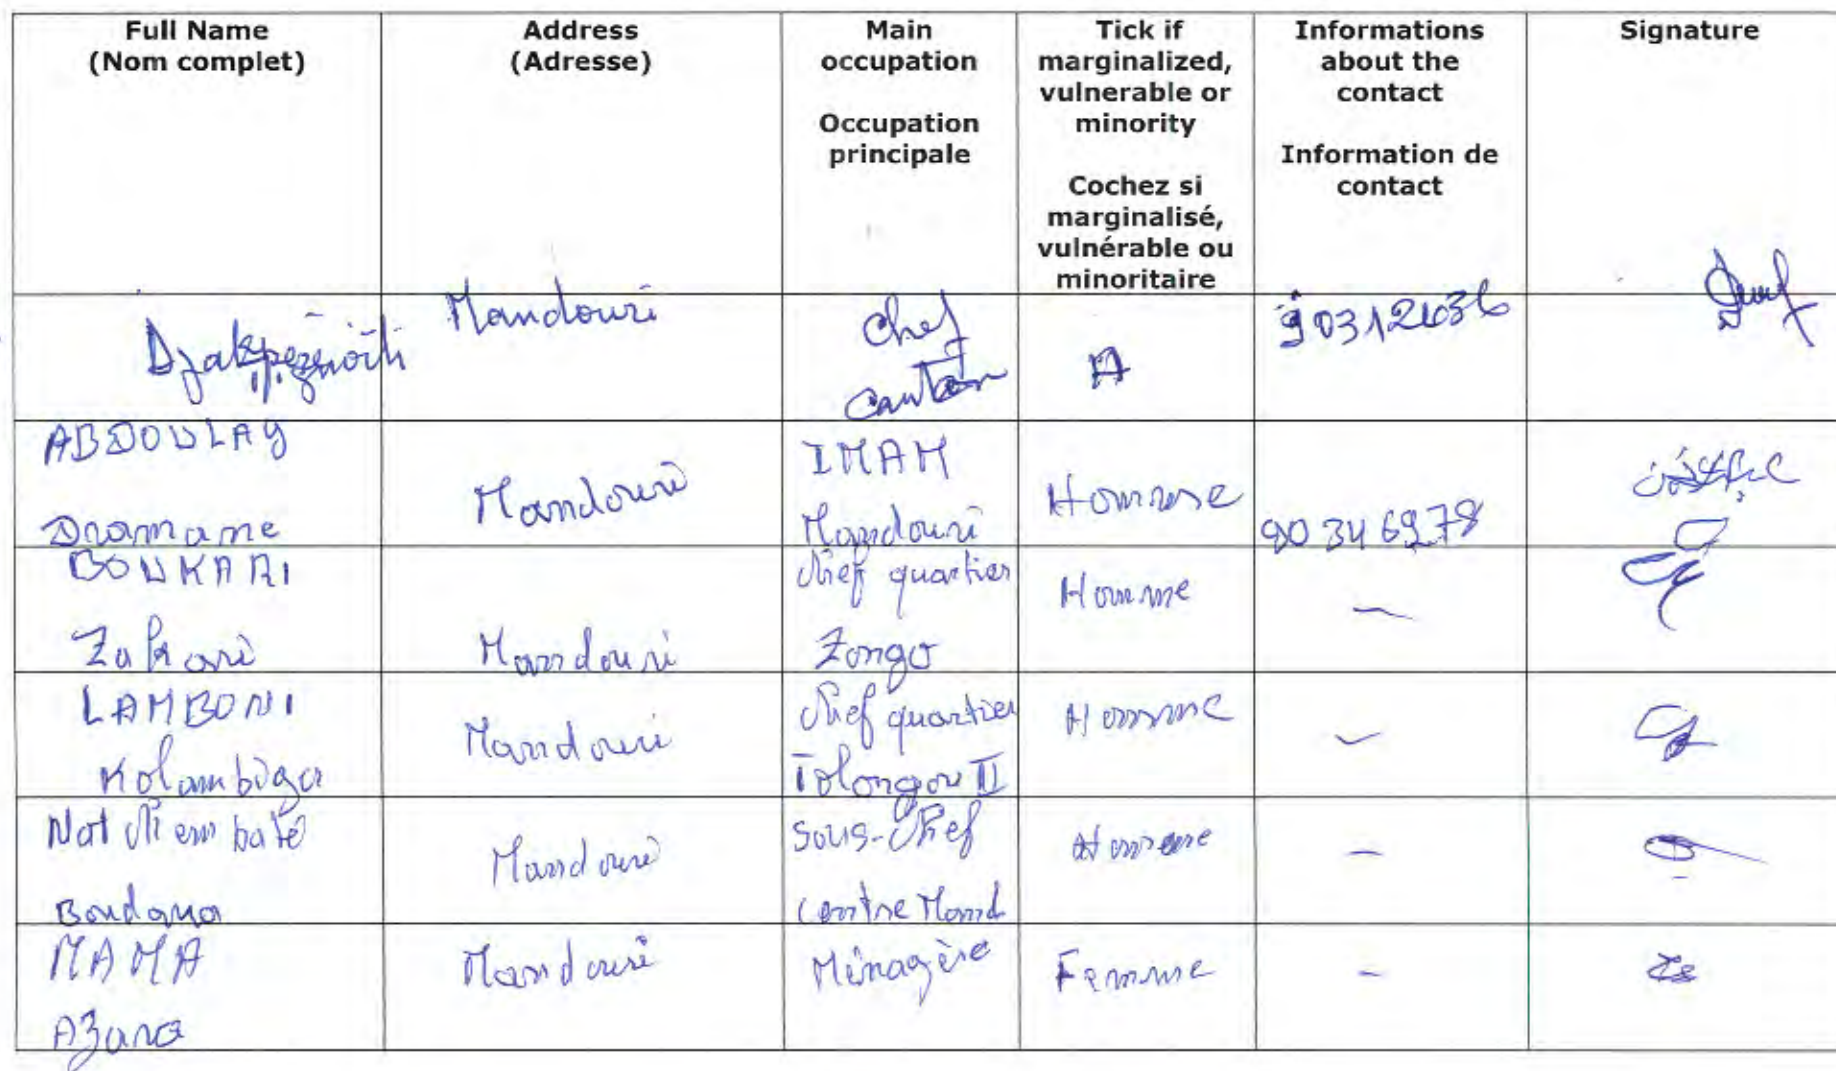 Full Name
(Nom complet)
Address
(Adresse)
Main
occupation
Occupation
principale
Tick if
marginalized,
vulnerable or
minority
Cochez si
marginalisé,
vulnérable ou
minoritaire
Informations
about the
contact
Information de
contact
Signature
Mandouri
Chef
canton
ABDOULAY
Dramane
Mandouri
IMAM
Mandouri
Homme
90346978
BOUKARI
Zakari
Mandouri
chef quartier
Zongo
Homme
LAMBONI
Kolambiga
Mandouri
chef quartier
Tolongou II
Homme
Natchembaté
Boudana
Mandouri
Sous-Chef
centre Mand
Homme
MAMA
Azara
Mandouri
Ménagère
Femme